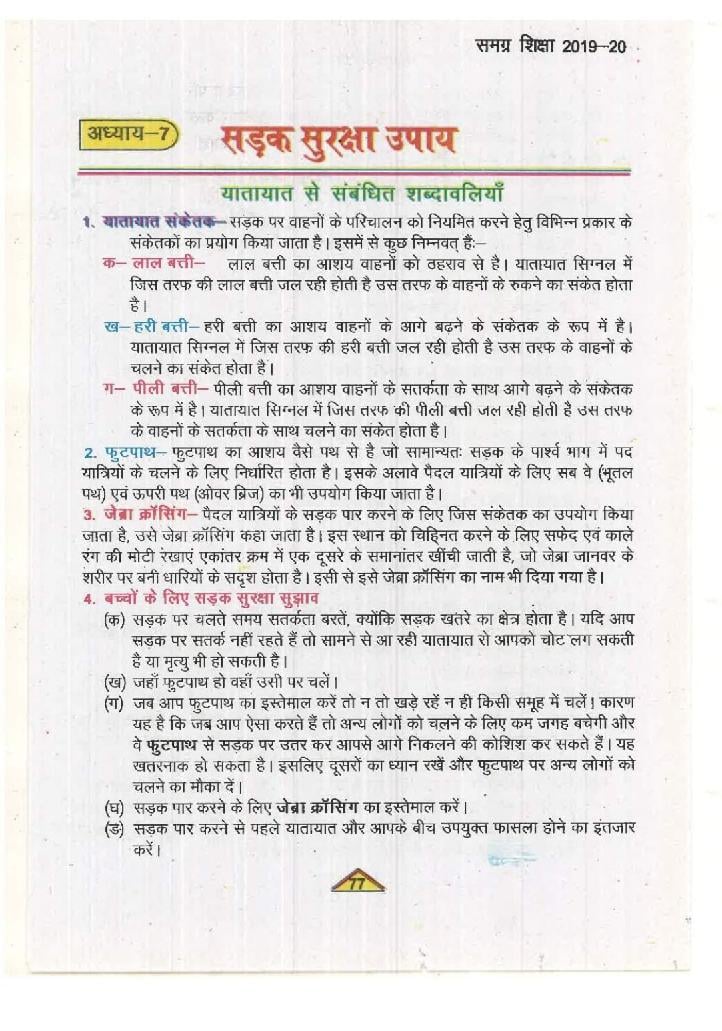 समग्र शिक्षा 2019–20
अध्याय–7
सड़क सुरक्षा उपाय
यातायात से संबंधित शब्दावलियाँ
1. यातायात संकेतक– सड़क पर वाहनों के परिचालन को नियमित करने हेतु विभिन्न प्रकार के
संकेतकों का प्रयोग किया जाता है। इसमें से कुछ निम्नवत् हैं:–
क– लाल बत्ती– लाल बत्ती का आशय वाहनों को ठहराव से है। यातायात सिग्नल में
जिस तरफ की लाल बत्ती जल रही होती है उस तरफ के वाहनों के रुकने का संकेत होता
है।
ख– हरी बत्ती– हरी बत्ती का आशय वाहनों के आगे बढ़ने के संकेतक के रूप में है।
यातायात सिग्नल में जिस तरफ की हरी बत्ती जल रही होती है उस तरफ के वाहनों के
चलने का संकेत होता है।
ग– पीली बत्ती– पीली बत्ती का आशय वाहनों के सतर्कता के साथ आगे बढ़ने के संकेतक
के रूप में है। यातायात सिग्नल में जिस तरफ की पीली बत्ती जल रही होती है उस तरफ
के वाहनों के सतर्कता के साथ चलने का संकेत होता है।
2. फुटपाथ– फुटपाथ का आशय वैसे पथ से है जो सामान्यतः सड़क के पार्श्व भाग में पद
यात्रियों के चलने के लिए निर्धारित होता है। इसके अलावे पैदल यात्रियों के लिए सब वे (भूतल
पथ) एवं ऊपरी पथ (ओवर ब्रिज) का भी उपयोग किया जाता है।
3. जेब्रा क्रॉसिंग– पैदल यात्रियों के सड़क पार करने के लिए जिस संकेतक का उपयोग किया
जाता है, उसे जेब्रा क्रॉसिंग कहा जाता है। इस स्थान को चिह्नित करने के लिए सफेद एवं काले
रंग की मोटी रेखाएं एकांतर क्रम में एक दूसरे के समानांतर खींची जाती है, जो जेब्रा जानवर के
शरीर पर बनी धारियों के सदृश होता है। इसी से इसे जेब्रा क्रॉसिंग का नाम भी दिया गया है।
4. बच्चों के लिए सड़क सुरक्षा सुझाव
(क) सड़क पर चलते समय सतर्कता बरतें, क्योंकि सड़क खतरे का क्षेत्र होता है। यदि आप
सड़क पर सतर्क नहीं रहते हैं तो सामने से आ रही यातायात से आपको चोट लग सकती
है या मृत्यु भी हो सकती है।
(ख) जहाँ फुटपाथ हो वहाँ उसी पर चलें।
(ग) जब आप फुटपाथ का इस्तेमाल करें तो न तो खड़े रहें न ही किसी समूह में चलें! कारण
यह है कि जब आप ऐसा करते हैं तो अन्य लोगों को चलने के लिए कम जगह बचेगी और
वे फुटपाथ से सड़क पर उतर कर आपसे आगे निकलने की कोशिश कर सकते हैं। यह
खतरनाक हो सकता है। इसलिए दूसरों का ध्यान रखें और फुटपाथ पर अन्य लोगों को
चलने का मौका दें।
(घ) सड़क पार करने के लिए जेब्रा क्रॉसिंग का इस्तेमाल करें।
(ङ) सड़क पार करने से पहले यातायात और आपके बीच उपयुक्त फासला होने का इंतजार
करें।
77